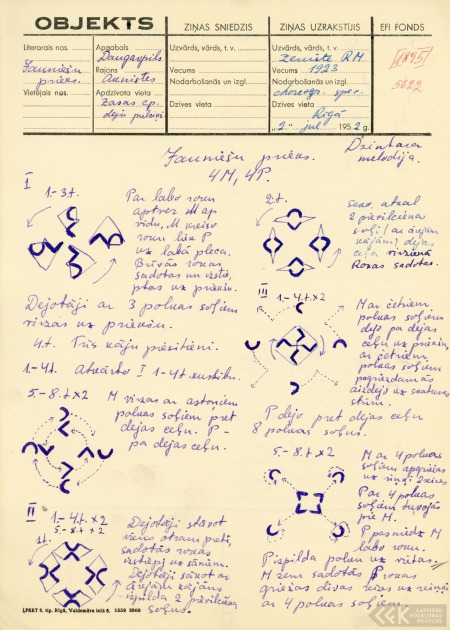 OBJEKTS
ZIŅAS SNIEDZIS
ZIŅAS UZRAKSTĪJIS
EFI FONDS
Literarais nos.
Jauniešu
prieks.
Vietējais nos.
Apgabals
Daugavpils
Rajons
Aknīstes
Apdzīvota vieta
Zasas cp.
deju pulciņš
Uzvārds, vārds, t. v.
Vecums
Nodarbošanās un izgl.
Dzīves vieta
Uzvārds, vārds, t. v.
Zemīte R.M.
Vecums 1923
Nodarbošanās un izgl.
choreogr. spec.
Dzīves vieta
Rīgā
"2" jūl 1952 g.
1895
5622
Jauniešu prieks.
4M, 4P.
Dzintara
melodija.
I
1.-3.t.
Par labo roku
aptver M ap
vidu, M kreiso
roku liek P
uz labā pleca.
Brīvās rokas
sadotas un izstie-
ptas uz priekšu.
Dejotāji ar 3 polkas soļiem
virzas uz priekšu.
4.t. Trīs kāju piesitieni.
1.-4t. Atkārto I 1-4t. kustību.
5.-8.t x2
M virzas ar astoņiem
polkas soļiem pret
dejas ceļu. P-
pa dejas ceļu.
II
1.-4.t. x2
5.-8.t x2
1t.
Dejotāji stāvot
viens otram pretī,
sadotās rokas
izstiepj uz sāniem.
Dejotāji sākot ar
ārējām kājām
izpilda 2 pievilciena
soļus.
2.t.
2 pievilciena
soļi (ar ārējām
kājām) dejas
ceļa virzienā
Rokas sadotas.
III
1.-4.t x2
M ar četriem
polkas soļiem
dejo pa dejas
ceļu uz priekšu,
ar četriem
polkas soļiem
pagriezdamās
aizdejo uz skatuves
stūri.
P dejo pret dejas ceļu
8 polkas soļus.
5.-8.t x2
M ar 4 polkas
soļiem apgriežas
uz riņķi 2 reizes
Par 4 polkas
soļiem tuvojas
pie M.
P pasniedz M
labo roku.
Piespilda polku uz vietas.
M zem sadotās rokas
griežas divas reizes uz riņķi
ar 4 polkas soļiem.
LPSRT 6. tip. Rīgā, Valdemāra ielā 8. 1559 2000
LATVIEŠU
FOLKLORAS
KRĀTUVE